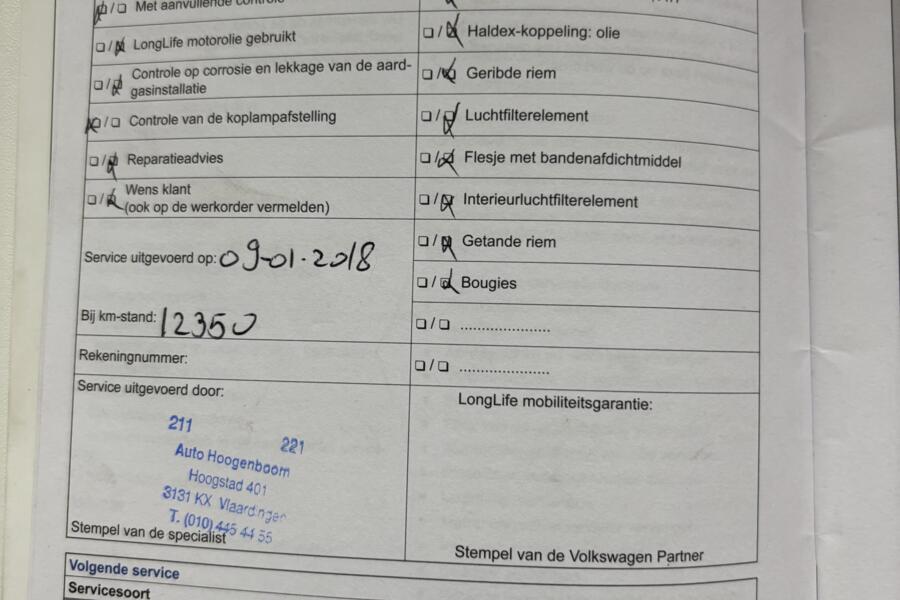 Met aanvullende controle
LongLife motorolie gebruikt
Controle op corrosie en lekkage van de aard-
gasinstallatie
Controle van de koplampafstelling
Reparatieadvies
Wens klant
(ook op de werkorder vermelden)
Service uitgevoerd op: 09-01-2018
Bij km-stand: 12350
Rekeningnummer:
Service uitgevoerd door:
211
221
Auto Hoogenboom
Hoogstad 401
3131 KX Vlaardingen
T. (010) 445 44 55
Stempel van de specialist
Haldex-koppeling: olie
Geribde riem
Luchtfilterelement
Flesje met bandenafdichtmiddel
Interieurluchtfilterelement
Getande riem
Bougies
......................
......................
LongLife mobiliteitsgarantie:
Stempel van de Volkswagen Partner
Volgende service
Servicesoort